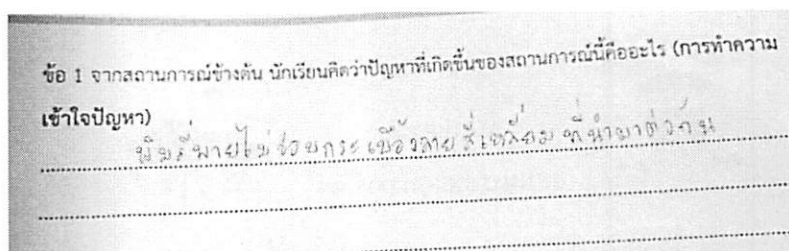 ข้อ 1 จากสถานการณ์ข้างต้น นักเรียนคิดว่าปัญหาที่เกิดขึ้นของสถานการณ์นี้คืออะไร (การทำความ
เข้าใจปัญหา)
พิมพิ์พายไม่ชอบกระเบื้องลายสี่เหลี่ยมที่นำมาต่อกัน